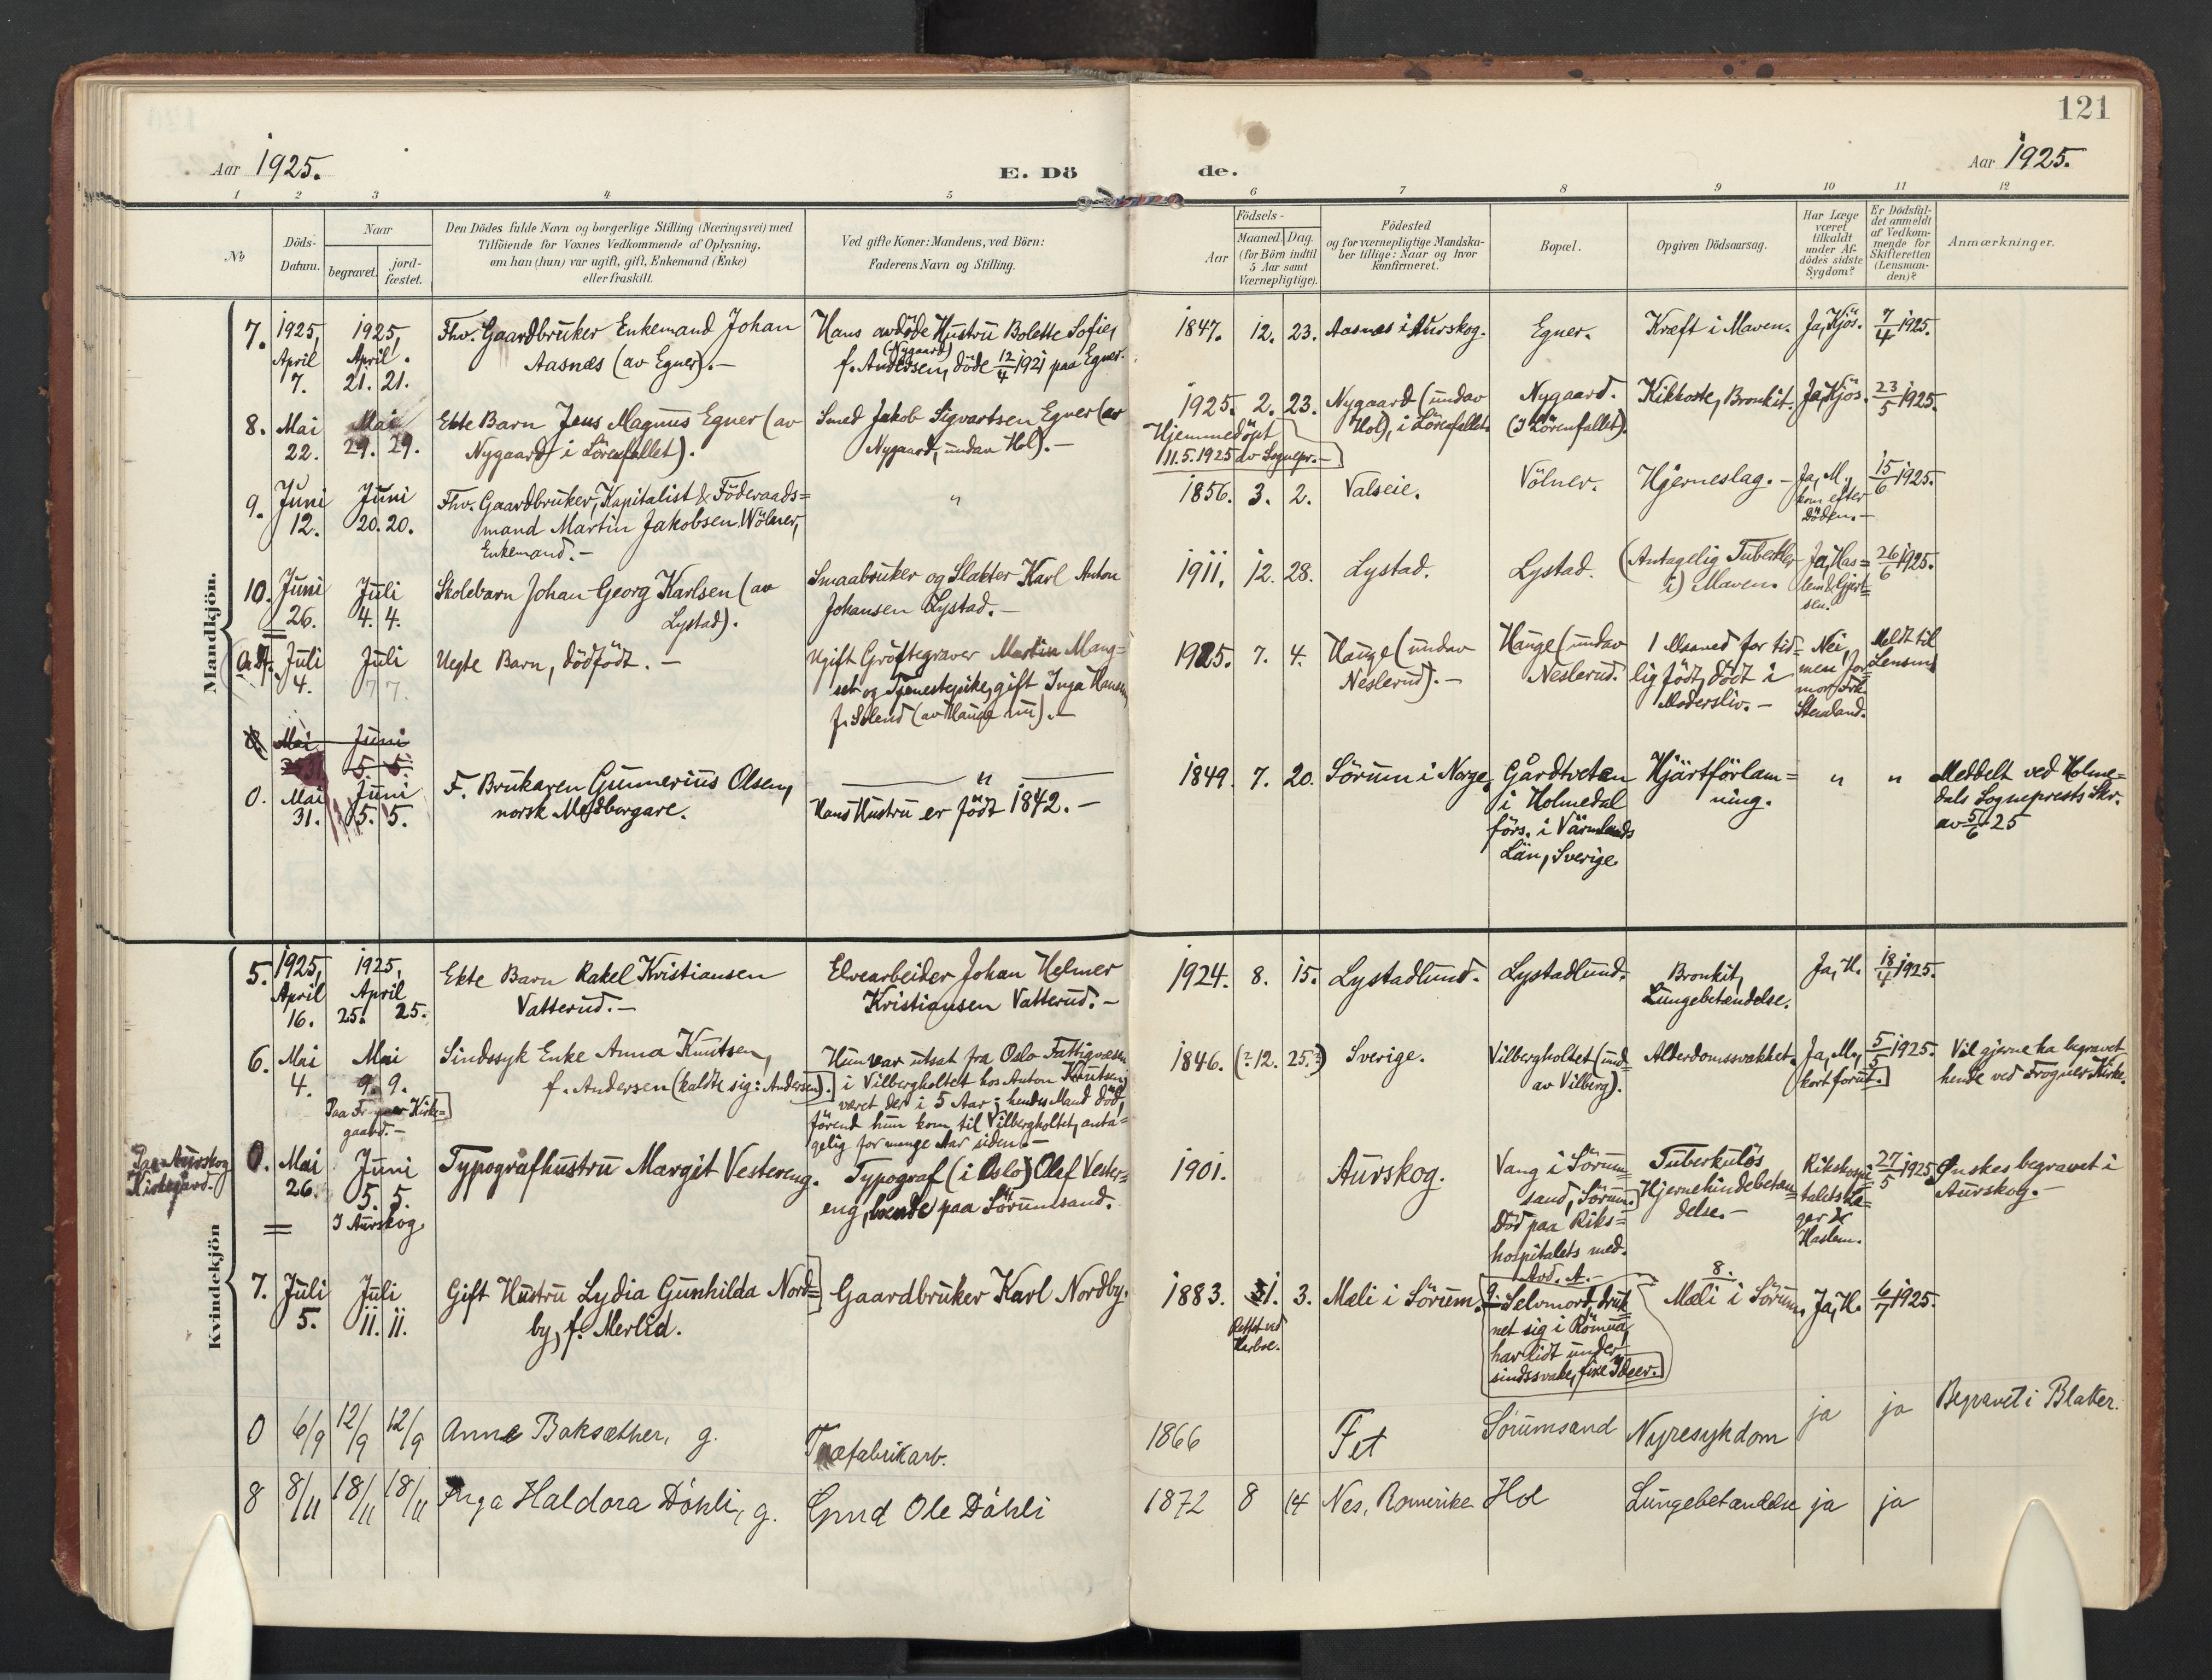 121
Aar 1925.
E. Dö de.
Aar 1925.
1 2 3 4 5 6 7 8 9 10 11 12
№
Döds-
Datum.
Naar
begravet.
jord-
fæstet.
Den Dödes fulde Navn og borgerlige Stilling (Næringsvei) med
Tilföiende for Voxnes Vedkommende af Oplysning,
om han (hun) var ugift, gift, Enkemand (Enke)
eller fraskilt.
Ved gifte Koner: Mandens, ved Börn:
Faderens Navn og Stilling.
Födsels-
Aar
Maaned. Dag.
(for Börn indtil
5 Aar samt
Værnepligtige).
Födested
og for værnepligtige Mandska-
ber tillige: Naar og hvor
konfirmeret.
Bopæl.
Opgiven Dödsaarsag.
Har Læge
været
tilkaldt
under Af-
dödes sidste
Sygdom?
Er Dödsfal-
det anmeldt
af Vedkom-
mende for
Skifteretten
(Lensman-
den)?
Anmærkninger.
Mandkjön.
7. 1925,
April
7.
1925,
April.
21. 21.
Fhv. Gaardbruker Enkemand Johan
Aasnæs (av Egner). –
Hans avdöde Hustru Bolette Sofie,
(Nygaard)
f. Andersen, döde 12/4 1921 paa Egner.
1847. 12. 23. Aasnæs i Aurskog.
Egner.
Kræft i Maven.
Ja, Kjös.
7/4 1925.
8. Mai
22.
Mai
29. 29.
Ekte Barn Jens Magnus Egner (av
Nygaard i Lörenfallet).
Smed Jakob Sigvartsen Egner (av
Nygaard, undav Hol). –
1925. 2. 23.
Hjemmedöpt
11.5.1925 av Sognepr. –
Nygaard (undav
Hol), i Lörenfallet.
Nygaard.
(I Lörenfallet).
Kikhoste, Bronkit.
Ja, Kjös.
23/5 1925.
9. Juni
12.
Juni
20. 20.
Fhv. Gaardbruker, Kapitalist & Föderaads=
mand Martin Jakobsen Wölner,
Enkemand. –
"
1856. 3. 2. Valseie.
Völner.
Hjerneslag. –
Ja, M.,
kom efter
Döden. –
15/6 1925.
10. Juni
26.
Juli
4. 4.
Skolebarn Johan Georg Karlsen (av
Lystad).
Smaabruker og Slakter Karl Anton
Johansen Lystad. –
1911. 12. 28. Lystad.
Lystad.
(Antagelig Tuberkler
i) Maven.
Ja, Has=
lem & Gjert=
sen.
26/6 1925.
Juli
4.
Juli
7 7.
Uegte Barn, dödfödt. –
Ugift Gröftegraver Martin Mang=
set og Tjenestepike, gift Inga Hansen,
(av Hauge nu). –
1925. 7. 4. Hauge (undav
Neslerud). –
Hauge (undav
Neslerud.
1 Maaned for tid=
lig födt, dödt i
Modersliv. –
Nei,
men Jor=
mor Frk.
Meldt til
Lensmd
Mai Juni
5 5
0. Mai
31.
Juni
5. 5.
F. Brukaren Gunnerius Olsen,
norsk Medborgare.
"
Hans Hustru er födt 1842. –
1849. 7. 20. Sörum i Norge.
Gårdtveten
i Holmedal
förs. i Värmlands
Län, Sverige
Hjärtförlam=
ning.
" "
Meddelt ved Holme=
dals Sogneprests Skr.
av 5/6 25
Kvindekjön
5. 1925,
April
16.
1925,
April
25. 25.
Ekte Barn Rakel Kristiansen
Vatterud. –
Elvearbeider Johan Helmer
Kristiansen Vatterud. –
1924. 8. 15. Lystadlund.
Lystadlund.
Bronkit,
Lungebetændelse.
Ja, H.
18/4 1925.
6. Mai
4.
Mai
9. 9.
Paa Frogner Kirke=
gaard. –
Sindssyk Enke Anna Knutsen,
f. Andersen (kaldte sig: Andersen).
Hun var utsat fra Oslo Fattigvæsen
i Vilbergholtet hos Anton Knutsen,
været der i 5 Aar; hendes Mand död,
förend hun kom til Vilbergholtet, anta=
gelig for mange Aar siden. –
1846. (?12. 25.?) Sverige.
Vilbergholtet (und=
av Vilberg).
Alderdomssvakhet.
Ja, M.,
kort forut.
5/5 1925.
Vil gjerne ha begravet
hende ved Frogner Kirke.
Paa Aurskog
Kirkegård. –
0. Mai
26.
Juni
5. 5.
I Aurskog.
Typografhustru Margit Vestereng.
Typograf (i Oslo) Olaf Vester=
eng, boende paa Sörumsand.
1901. " " Aurskog.
Vang i Sörum=
sand, Sörum.
Död paa Riks=
hospitalets med.
Avd. A. –
Tuberkulös
Hjernehindebetæn=
delse. –
Rikshospi=
talets Læ=
ger &
Haslem.
27/5 1925
Ønskes begravet i
Aurskog. –
7. Juli
5.
Juli
11. 11.
Gift Hustru Lydia Gunhilda Nord=
by, f. Merlid.
Gaardbruker Karl Nordby.
1883. 1. 3. Mæli i Sörum.
Rettet ved
9. Selvmord, druk=
net sig i Römua,
har lidt under
sindssvake, fixe Ideer.
8.
Mæli i Sörum.
Ja, H.
6/7 1925.
0 6/9 12/9 12/9 Anne Baksæther, g.
Træfabrikarb.
1866 Fet
Sørumsand
Nyresykdom
ja ja
Begravet i Blaker.
8 8/11 18/11 18/11 Inga Haldora Döhli, g.
Gmd Ole Döhli
1872 8 14 Nes, Romerike
Hol
Lungebetændelse
ja ja